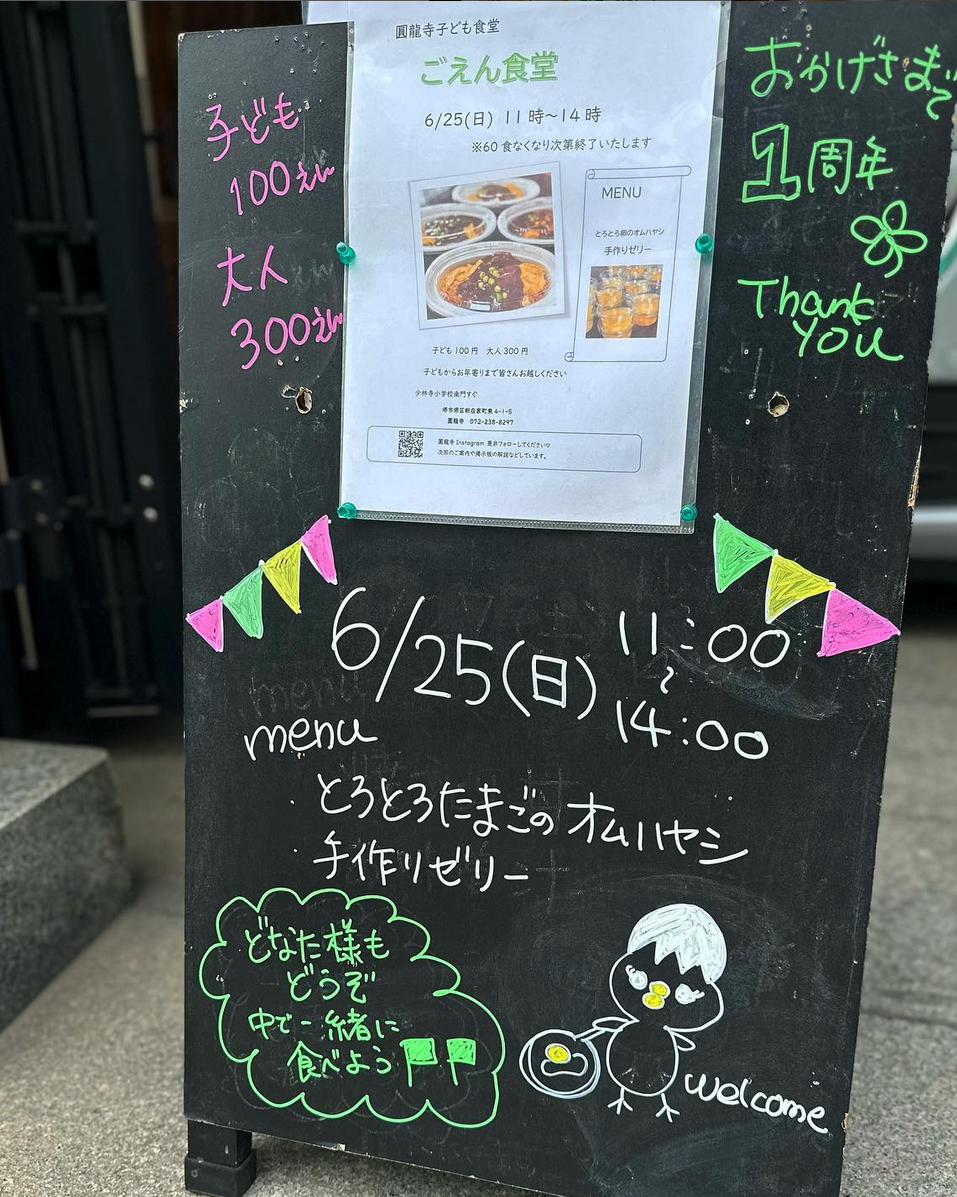 圓龍寺子ども食堂
ごえん食堂
6/25(日) 11時～14時
※60食なくなり次第終了いたします
MENU
とろとろ卵のオムハヤシ
手作りゼリー
子ども100円 大人300円
子どもからお年寄りまで皆さんお越しください
少林寺小学校南門すぐ
堺市堺区新在家町東4-1-5
圓龍寺 072-238-8297
圓龍寺Instagram 是非フォローしてください♡
次回のご案内や掲示板の解説などしています。
子ども
100えん
大人
300えん
おかげさまで
1周年
Thank
you
6/25(日) 11:00
～
14:00
menu
・とろとろたまごの オムハヤシ
・手作りゼリー
どなた様も
どうぞ
中で一緒に
食べよう
welcome